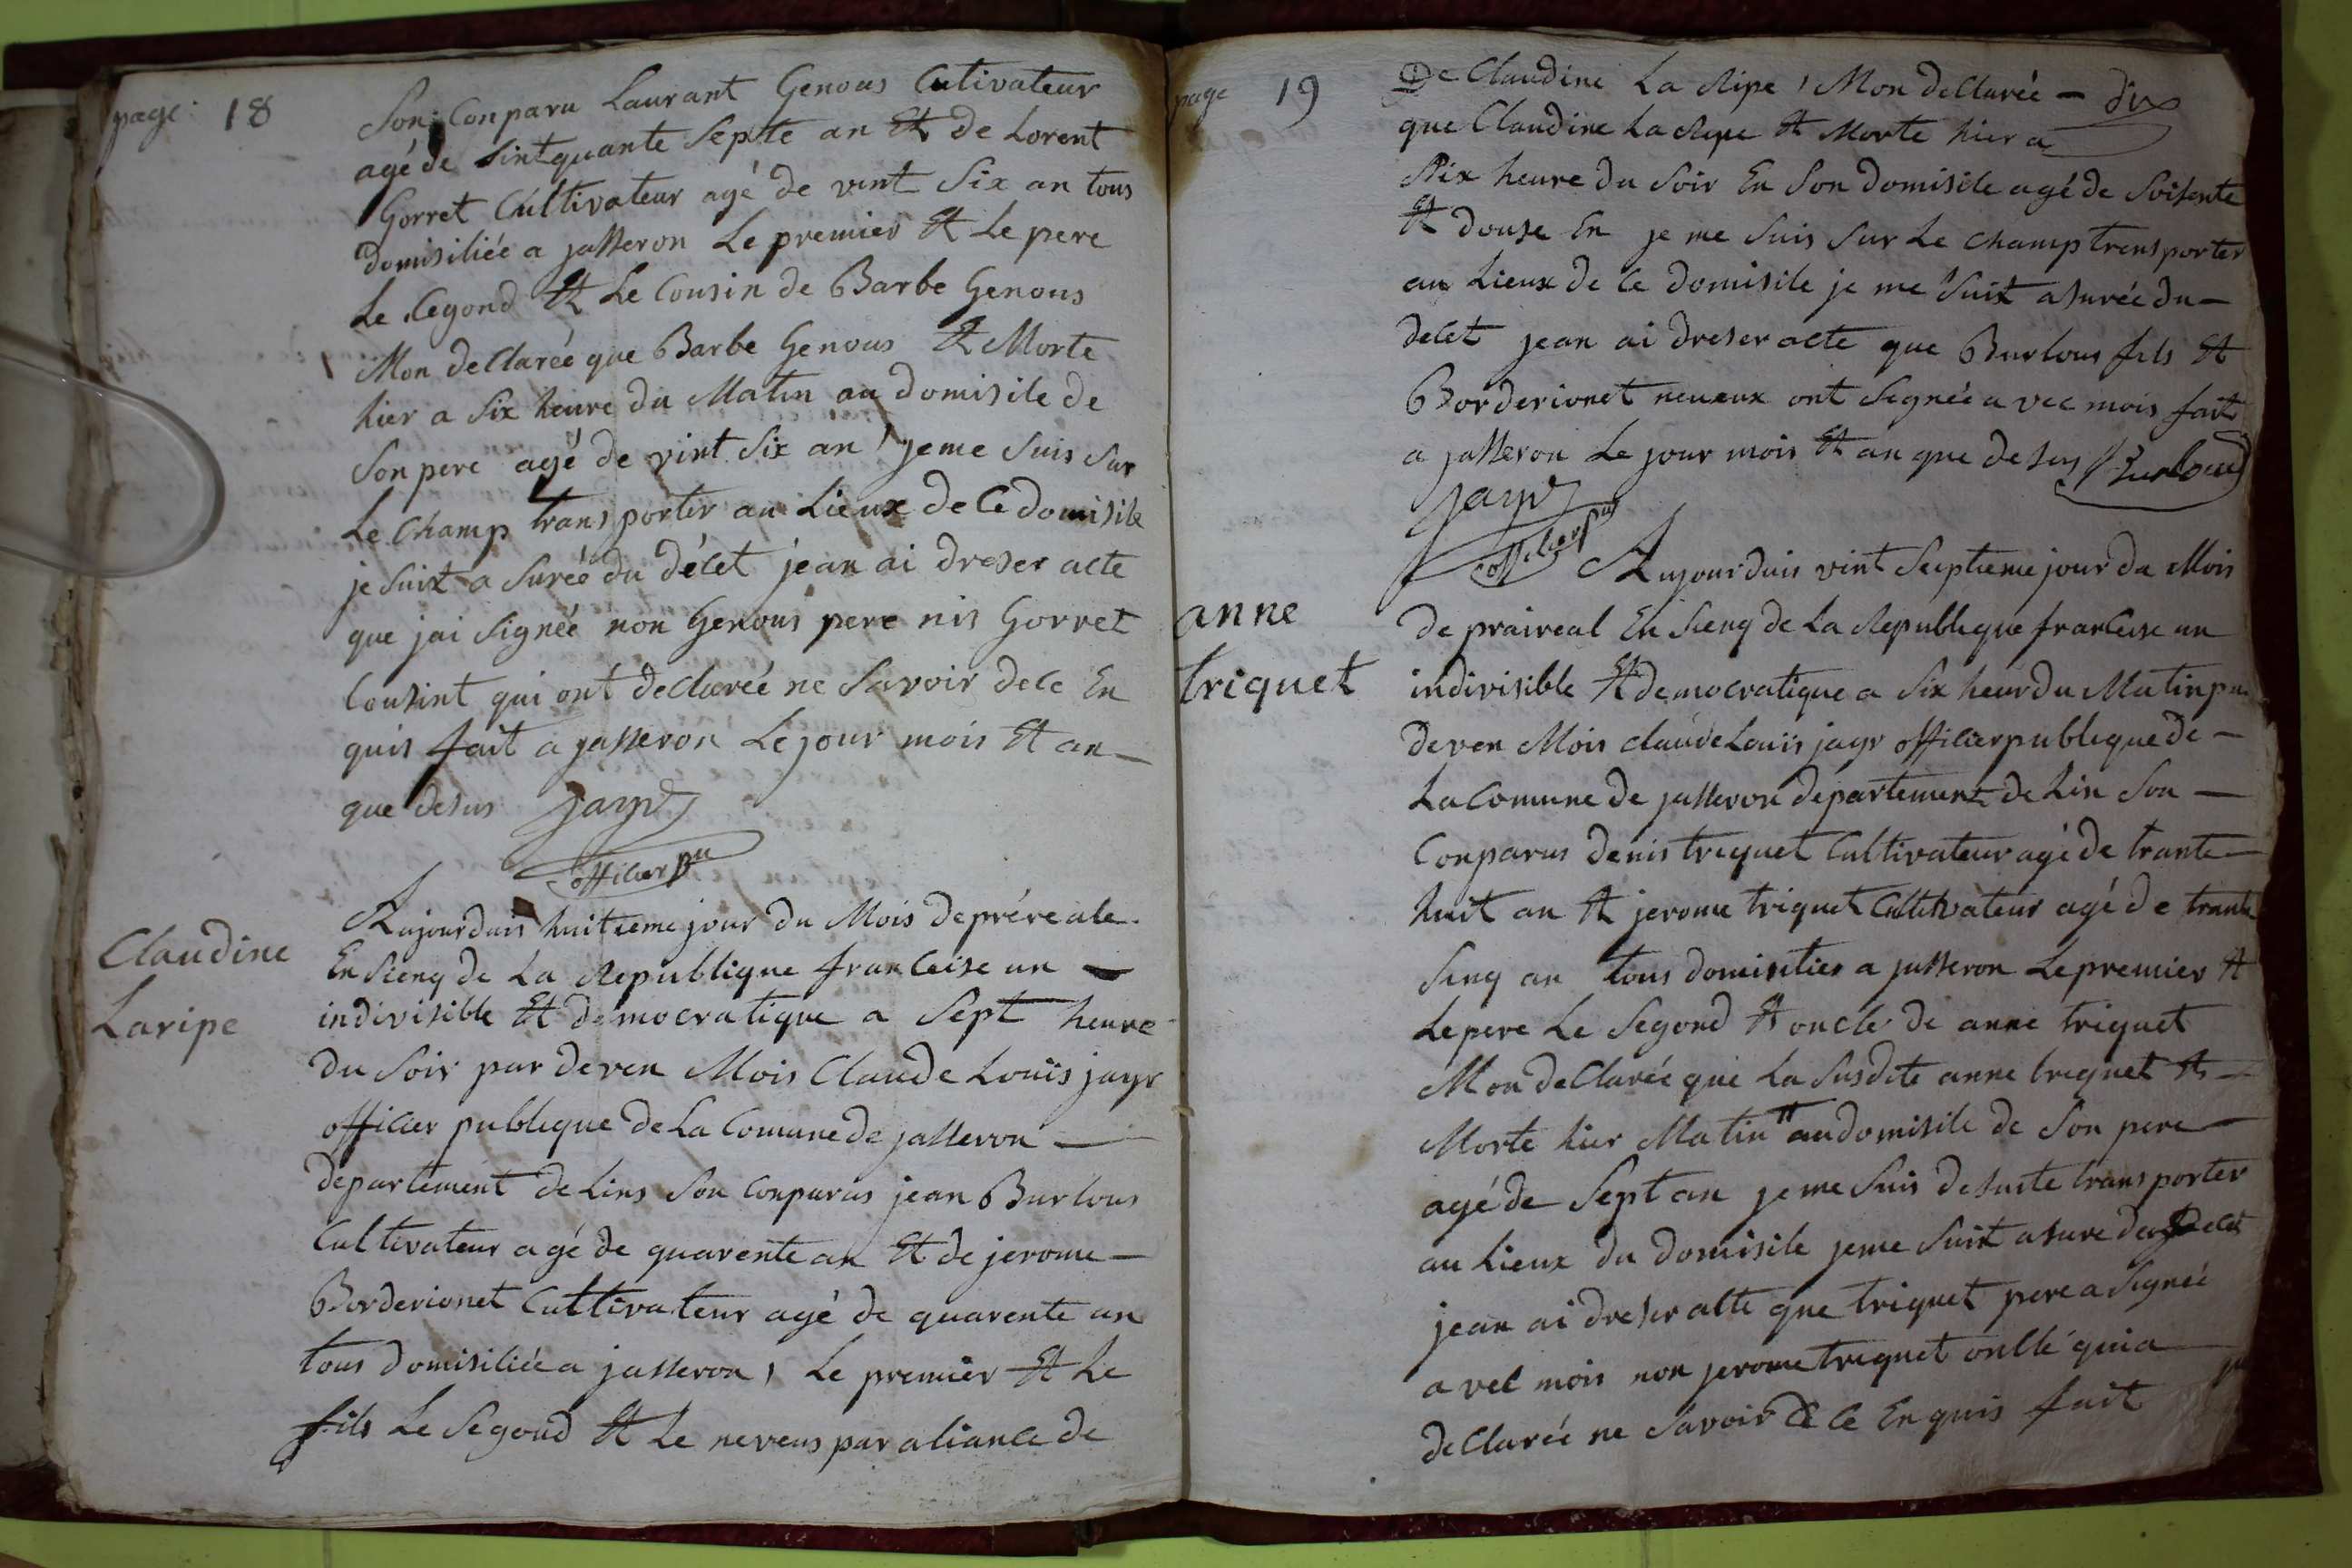 page 18
Son Conparu Laurant Genous Cutivateur
agé de Sintquante Septe an Et de Lorent
Gorret Cultivateur agé de vint Six an tous
domisiliée a jasseron Le premier Et Le pere
Le Cegond Et Le Cousin de Barbe Genous
Mon declarée que Barbe Genous Et Morte
hier a Six heure du Matin au domisile de
Son pere agé de vint Six an je me Suis Sur
Le Champ transporter au Lieux de Ce domisile
je Suit a Surée du décet jean ai dreser acte
que jai Signée non Genous pere nis Gorret
Cousint qui ont declarée ne Savoir de ce En
quis fait a jasseron Le jour mois Et an
que desus jayr
officier pu
Claudine
Laripe
Aujourduis huitieme jour du Mois de préreale
En Sienq de La Republique franCeise un
indivisible Et démocratique a Sept heure
du Soir par deven Mois Claude Louïs jayr
officier publique de La Comune de jasseron
departement de Lins Son Conparus jean Burlous
Cultivateur agé de quarente an Et de jerome
Borderionet Cultivateur agé de quarente an
tous domisiliée a jasseron, Le premier Et Le
fils Le Segond Et Le neveus par alianCe de
page 19
De Claudine La Ripe, Mon deClarée — dix
que Claudine La Ripe Et Morte hier a
Six heure du Soir En Son domisile agé de Soisente
Et douse En je me Suis Sur Le Champ trensporter
au Lieux de Ce domisile je me Suit asurée du
decet jean ai dreser acte que Burlous fils Et
Borderionet neueux ont Segnée avec mois fait
a jasseron Le jour mois Et an que desus Burloud
jayr
officier pu
anne
triquet
Aujourduis vint Septieme jour du Mois
de praireal En Sienq de La Republique franCeise un
indivisible Et democratique a Six heur du Matin par
deven Mois claude Louïs jayr officier publeque de
La Comune de jasseron département de Lin Son
Conparus denis trequet Cultivateur agé de trante
huit an Et jerome triquet Cultivateur agé de trante
Sinq an tous domisilies a jasseron Le premier Et
Le pere Le Segond Et oncle de anne triquet
Mon deClarée que La Susdite anne triquet Et
Morte hier Matin au domisile de Son pere
agé de Sept an je me Suis desuite transporter
au Lieux du domisile je me Suit asure du decet
jean ai dreser atte que triquet pere a Signée
avec mois non jerome triquet onClé qui a
deClarée ne Savoir de Ce En quis fait